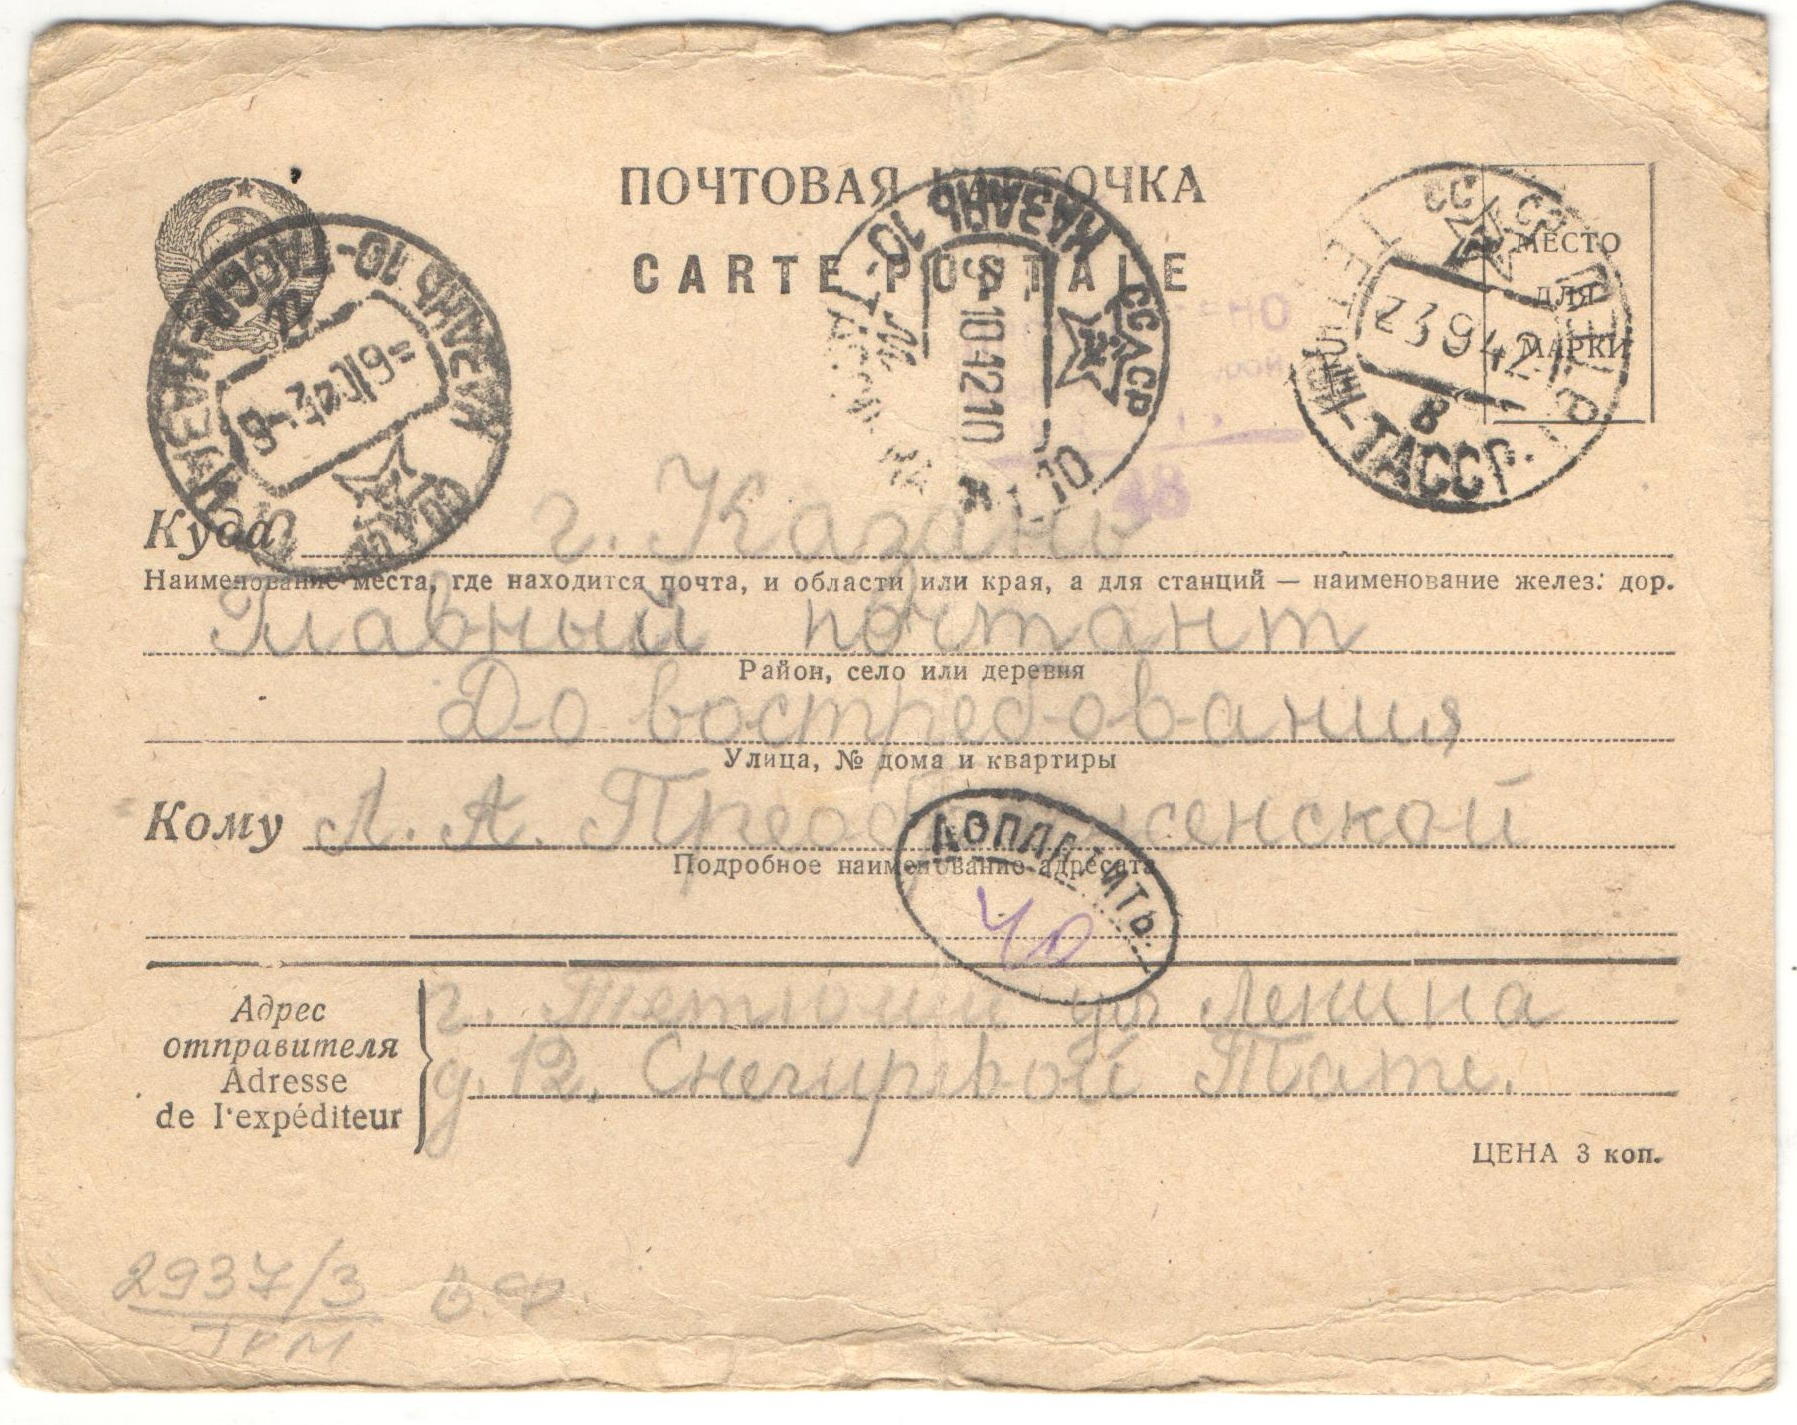 ПОЧТОВАЯ КАРТОЧКА
CARTE POSTALE
МЕСТО
ДЛЯ
МАРКИ
КАЗАНЬ 10
КАЗАНЬ 10
ТЕТЮШИ
23 9 42
8
ТАССР
48
Куда г. Казань
Наименование места, где находится почта, и области или края, а для станций — наименование желез. дор.
Главный почтамт
Район, село или деревня
До востребования
Улица, № дома и квартиры
Кому Л. А. Преображенской
Подробное наименование адресата
ДОПЛАТИТЬ
40
Адрес
отправителя
Adresse
de l'expéditeur
г. Тетюши ул Ленина
д. 12. Снегиревой Тате.
ЦЕНА 3 коп.
2937/3 В.Ф.